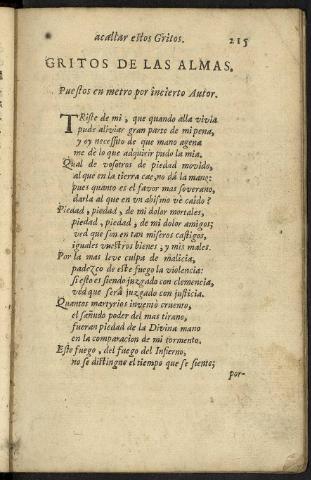 acallar estos Gritos. 215
GRITOS DE LAS ALMAS.
Puestos en metro por incierto Autor.
TRiste de mi, que quando alla vivia
pude aliviar gran parte de mi pena,
y oy necessito de que mano agena
me dè lo que adquirir pudo la mia.
Qual de vosotros de piedad movido,
al que en la tierra cae, no dá la mano?
pues quanto es el favor mas soverano,
darla al que en un abismo ve caido?
Piedad, piedad, de mi dolor mortales,
piedad, piedad, de mi dolor amigos;
ved que son en tan miseros castigos,
iguales vuestros bienes, y mis males.
Por la mas leve culpa de malicia,
padezco de este fuego la violencia:
si esto es siendo juzgado con clemencia,
ved que será juzgado con justicia.
Quantos martyrios inventò cruento,
el sañudo poder del mas tirano,
fueran piedad de la Divina mano
en la comparacion de mi tormento.
Este fuego, del fuego del Infierno,
no se distingue el tiempo que se siente;
por-